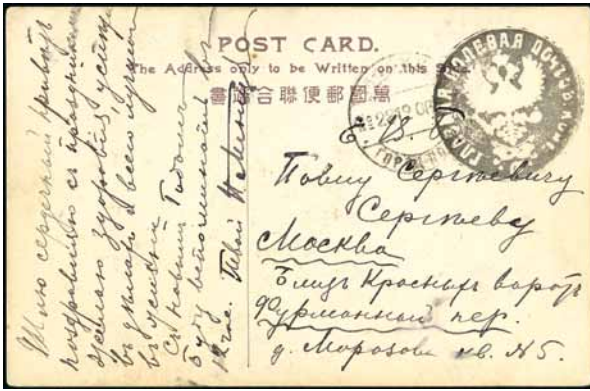 POST CARD.
The Address only to be Written on this Side.
書端合聯便郵國萬
ГЛАВНАЯ ПОЛЕВАЯ ПОЧТОВ. КОНТ.
Павлу Сергѣевичу
Сергѣеву
Москва
Близъ Красныхъ воротъ
Фурманный пер.
д. Морозова кв. №5.
Шлю сердечный привѣтъ
поздравляю съ праздникомъ
желаю здоровья успѣх
въ дѣлахъ и всего лучшаго
въ жизни
Съ новымъ Годомъ
Буду вспоминать въ
12 час. Твой